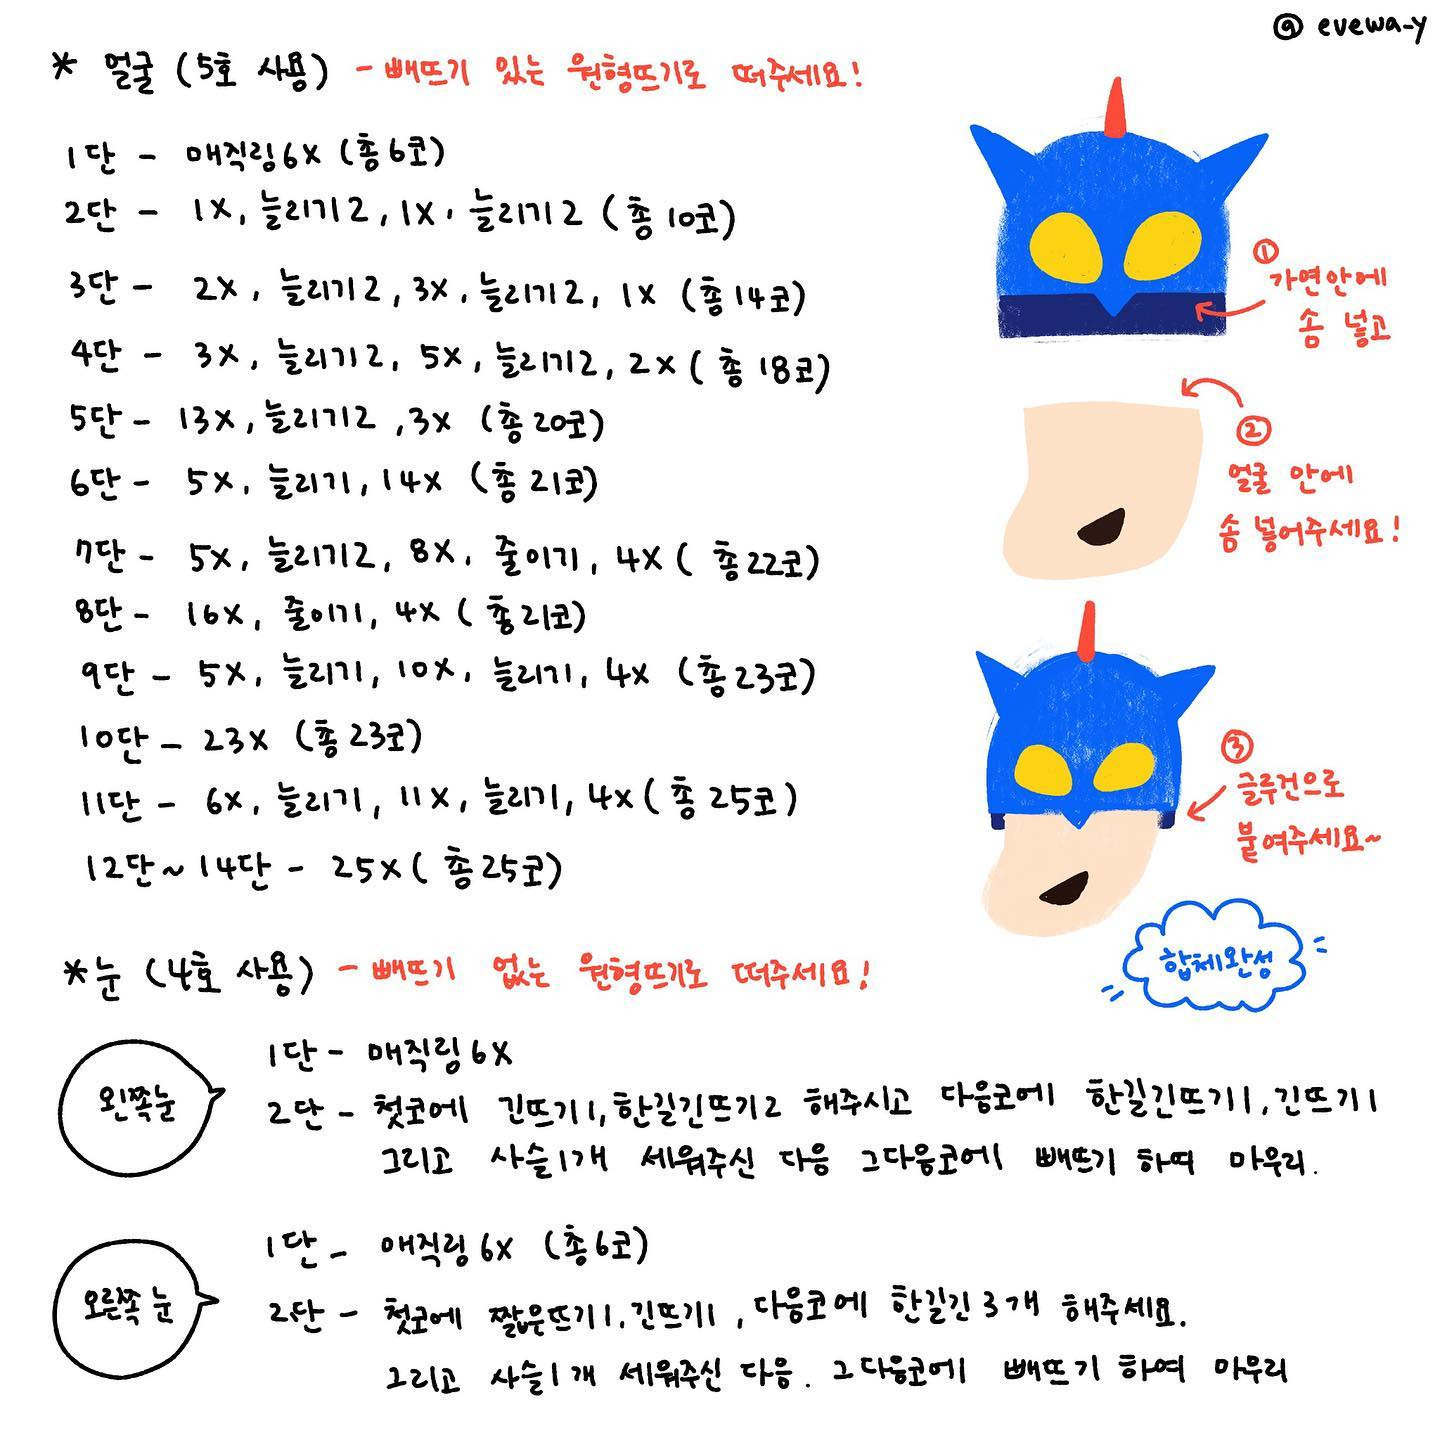 @ evewa-y
* 얼굴 (5호 사용) - 빼뜨기 있는 원형뜨기로 떠주세요!
1단 - 매직링6X (총6코)
2단 - 1X, 늘리기2, 1X, 늘리기2 (총10코)
3단 - 2X, 늘리기2, 3X, 늘리기2, 1X (총14코)
4단 - 3X, 늘리기2, 5X, 늘리기2, 2X (총18코)
5단 - 13X, 늘리기2, 3X (총20코)
6단 - 5X, 늘리기, 14X (총21코)
7단 - 5X, 늘리기2, 8X, 줄이기, 4X (총22코)
8단 - 16X, 줄이기, 4X (총21코)
9단 - 5X, 늘리기, 10X, 늘리기, 4X (총23코)
10단 - 23X (총23코)
11단 - 6X, 늘리기, 11X, 늘리기, 4X (총25코)
12단~14단 - 25X (총25코)
① 가면안에
솜 넣고
②
얼굴 안에
솜 넣어주세요!
③
글루건으로
붙여주세요~
합체완성
*눈 (4호 사용) - 빼뜨기 없는 원형뜨기로 떠주세요!
왼쪽눈
1단 - 매직링6X
2단 - 첫코에 긴뜨기1, 한길긴뜨기2 해주시고 다음코에 한길긴뜨기1, 긴뜨기1
그리고 사슬1개 세워주신 다음 그다음코에 빼뜨기 하여 마무리.
오른쪽 눈
1단 - 매직링6X (총6코)
2단 - 첫코에 짧은뜨기1, 긴뜨기1, 다음코에 한길긴 3개 해주세요.
그리고 사슬1개 세워주신 다음. 그다음코에 빼뜨기 하여 마무리